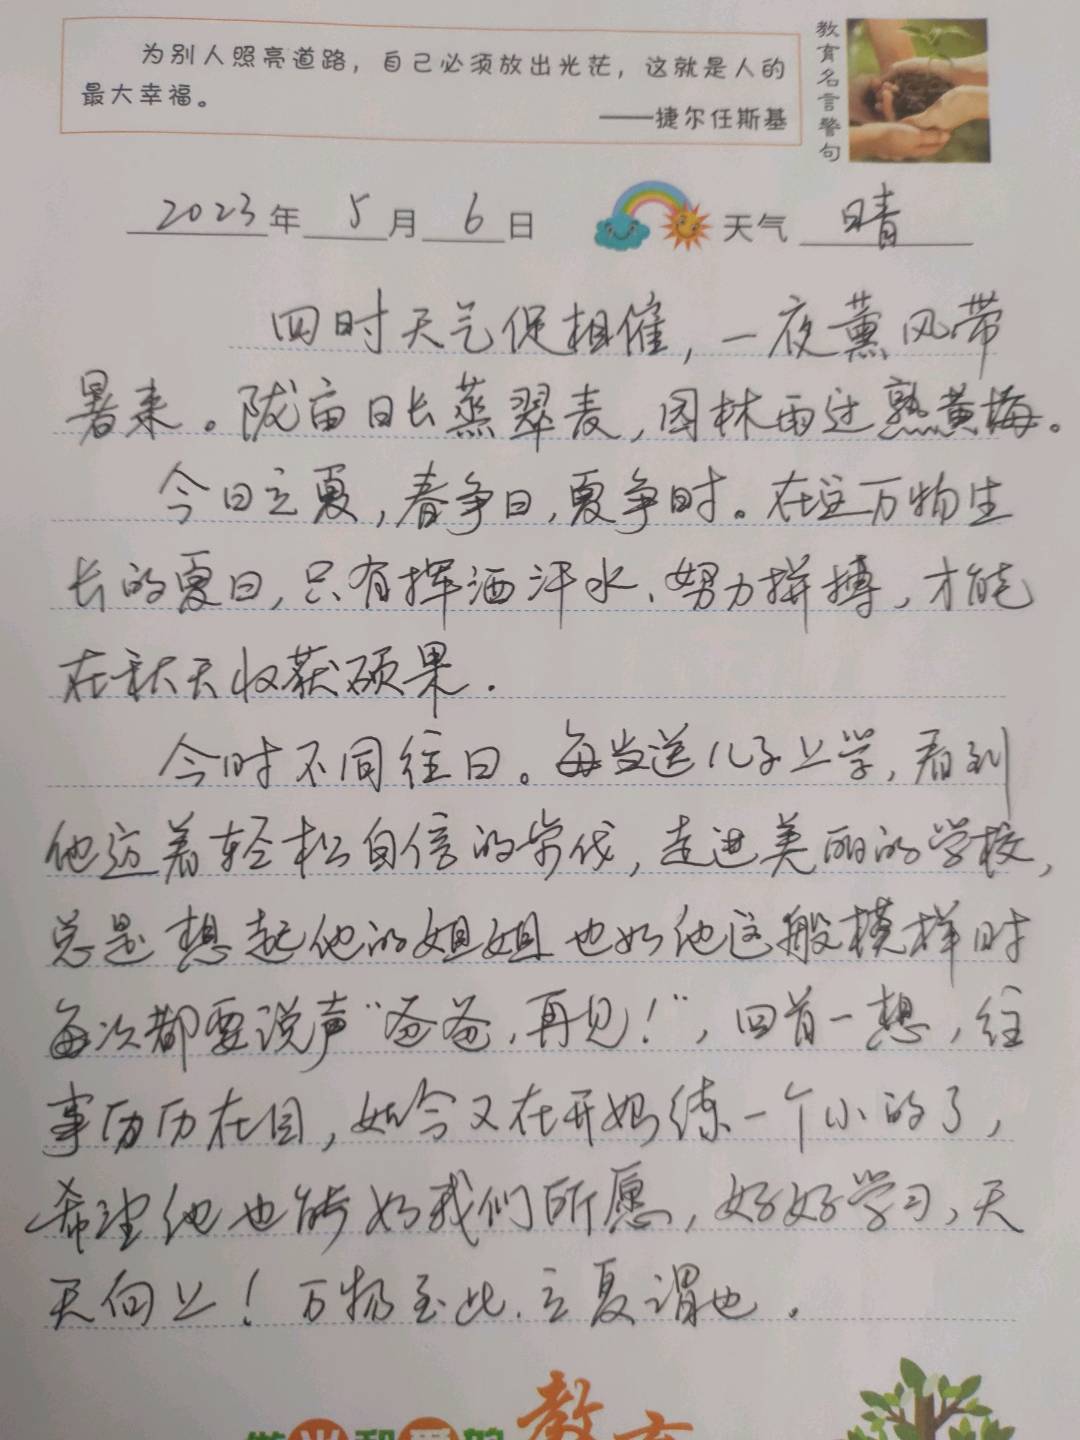 为别人照亮道路，自己必须放出光芒，这就是人的
最大幸福。
——捷尔任斯基
教育名言警句
2023年 5月 6日 天气 晴
四时天气促相催，一夜薰风带
暑来。陇亩日长蒸翠麦，园林雨过熟黄梅。
今日立夏，春争日，夏争时。在这万物生
长的夏日，只有挥洒汗水、努力拼搏，才能
在秋天收获硕果.
今时不同往日。每当送儿子上学，看到
他迈着轻松自信的步伐，走进美丽的学校，
总是想起他的姐姐也如他这般模样时
每次都要说声“爸爸，再见！”，回首一想，往
事历历在目，如今又在开始练一个小的了，
希望他也能如我们所愿，好好学习、天
天向上！万物至此.立夏谓也.
教育